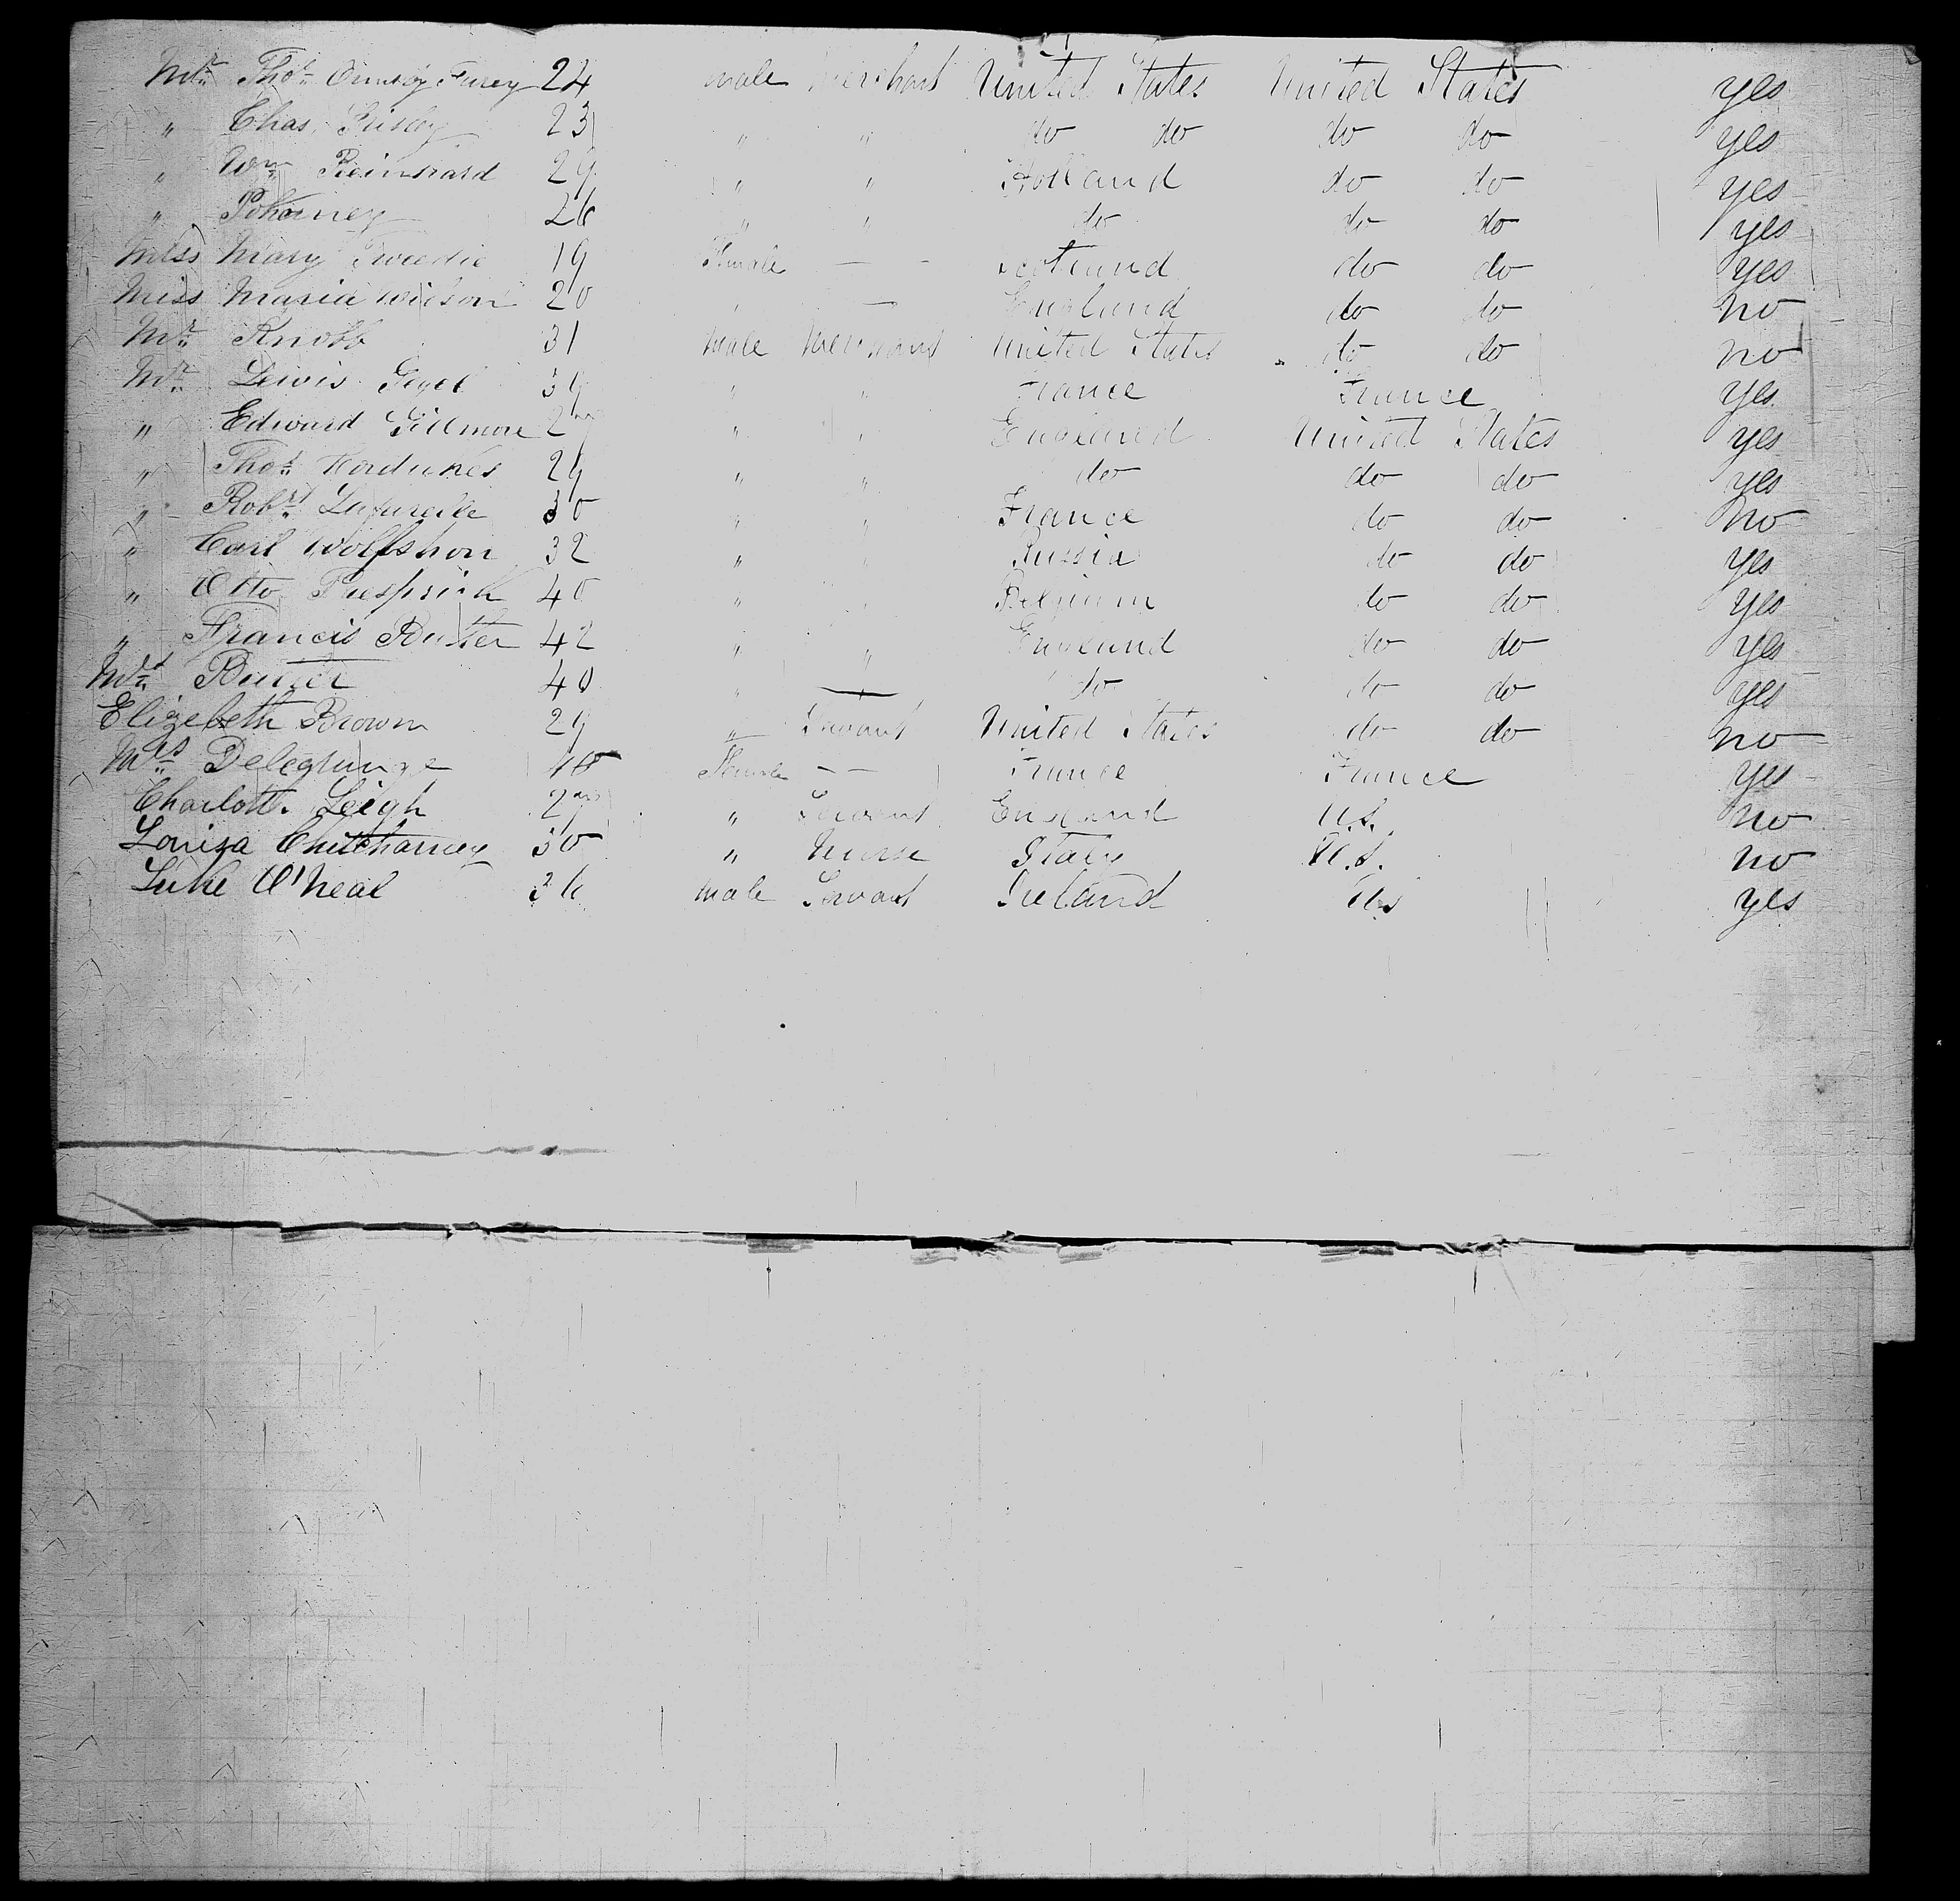 Mr Thos Ormsby Furey 24 male Merchant United States United States yes
" Chas 23 " " do do do do yes
" Wm Reinhard 29 " " Holland do do yes
" Pohorney 26 " " do do do yes
Miss Mary Tweedie 19 Female — - Scotland do do yes
Miss Maria Wilson 20 " — England do do no
Mr Knobb 31 Male Merchant United States do do no
Mr Lewis 39 " " France France yes
" Edward Gillmore 27 " " England United States yes
" Thos 29 " " do do do yes
" Robt 30 " " France do do no
" Carl Wolfshon 32 " " Russia do do yes
" Otto 40 " " Belgium do do yes
" Francis Butter 42 " " England do do yes
Mrs Butter 40 " — do do do yes
Elizebeth Brown 29 " Servant United States do do no
Mrs Delegrange 40 Female — — France France yes
Charlotte Leigh 27 " Servant England U.S. no
Louiza 30 " Nurse Italy U.S. no
Luke O'Neal 36 male Servant Ireland US yes